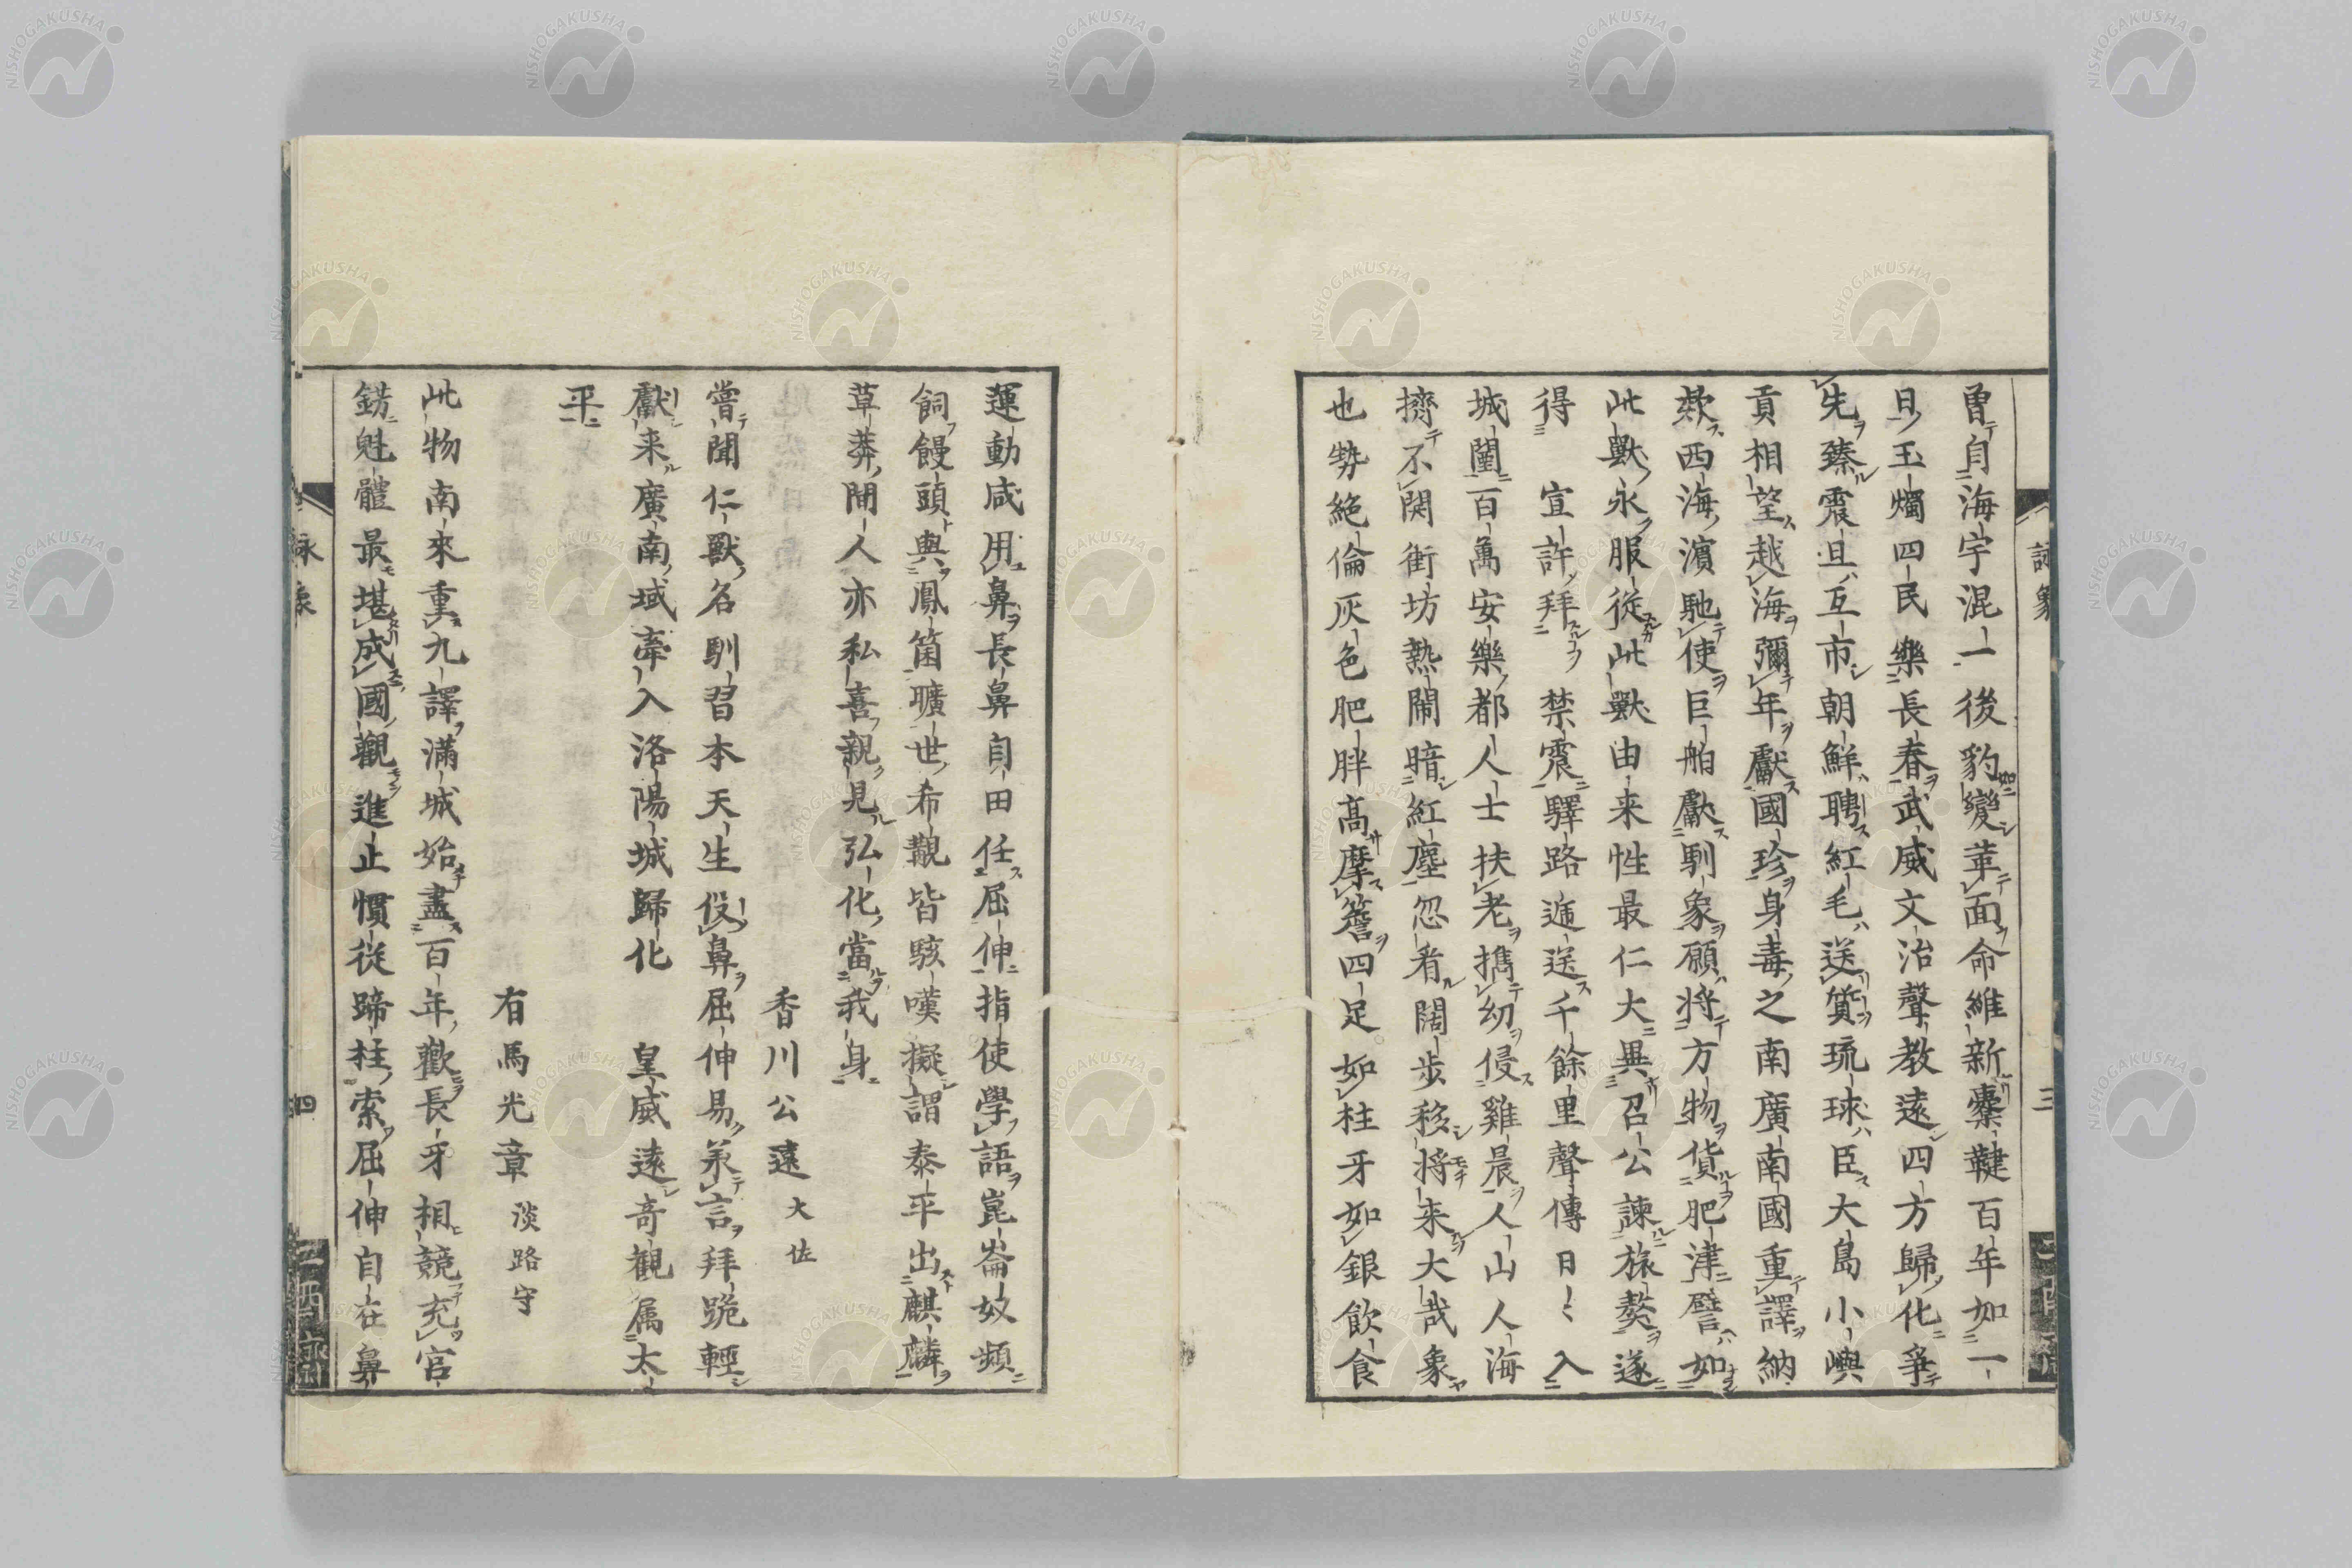 曽自海宇混一後豹變革面命維新櫜鞬百年如一
日玉燭四民樂長春武威文治聲教遠四方歸化爭
先臻震旦互市朝鮮聘紅毛送質琉球臣大島小嶼
貢相望越海彌年獻國珍身毒之南廣南國重譯納
欵西海濱馳使巨舶獻馴象願將方物貨肥津譬如
此獸永服從此獸由来性最仁大異召公諫旅獒遂
得　宣許拜　禁震驛路遞送千餘里聲傳日〻入
城闉百萬安樂都人士扶老携幼侵雞晨人山人海
擠不関街坊熱鬧暗紅塵忽看闊歩移将来大哉象
也勢絶倫灰色肥胖髙摩簷四足如柱牙如銀飲食
詠象
三
運動咸用鼻長鼻自田任屈伸指使學語崑崙奴頻
飼饅頭與鳳箘曠世希觀皆駭嘆擬謂泰平出麒麟
草莽閒人亦私喜親見弘化當我身
香川公遠 大佐
嘗聞仁獸名馴習本天生伇鼻屈伸易承言拜跪輕
獻来廣南域牽入洛陽城歸化　皇威遠竒觀属太
平
有馬光章 淡路守
此物南來重九譯滿城始盡百年歡長牙相競充官
錺魁體最堪成國觀進止慣從蹄柱索屈伸自在鼻
詠象
四